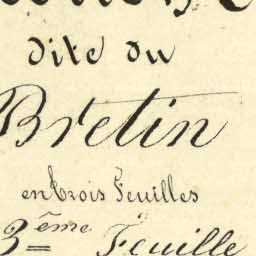 dite du
Bretin
en trois Feuilles
3ème Feuille